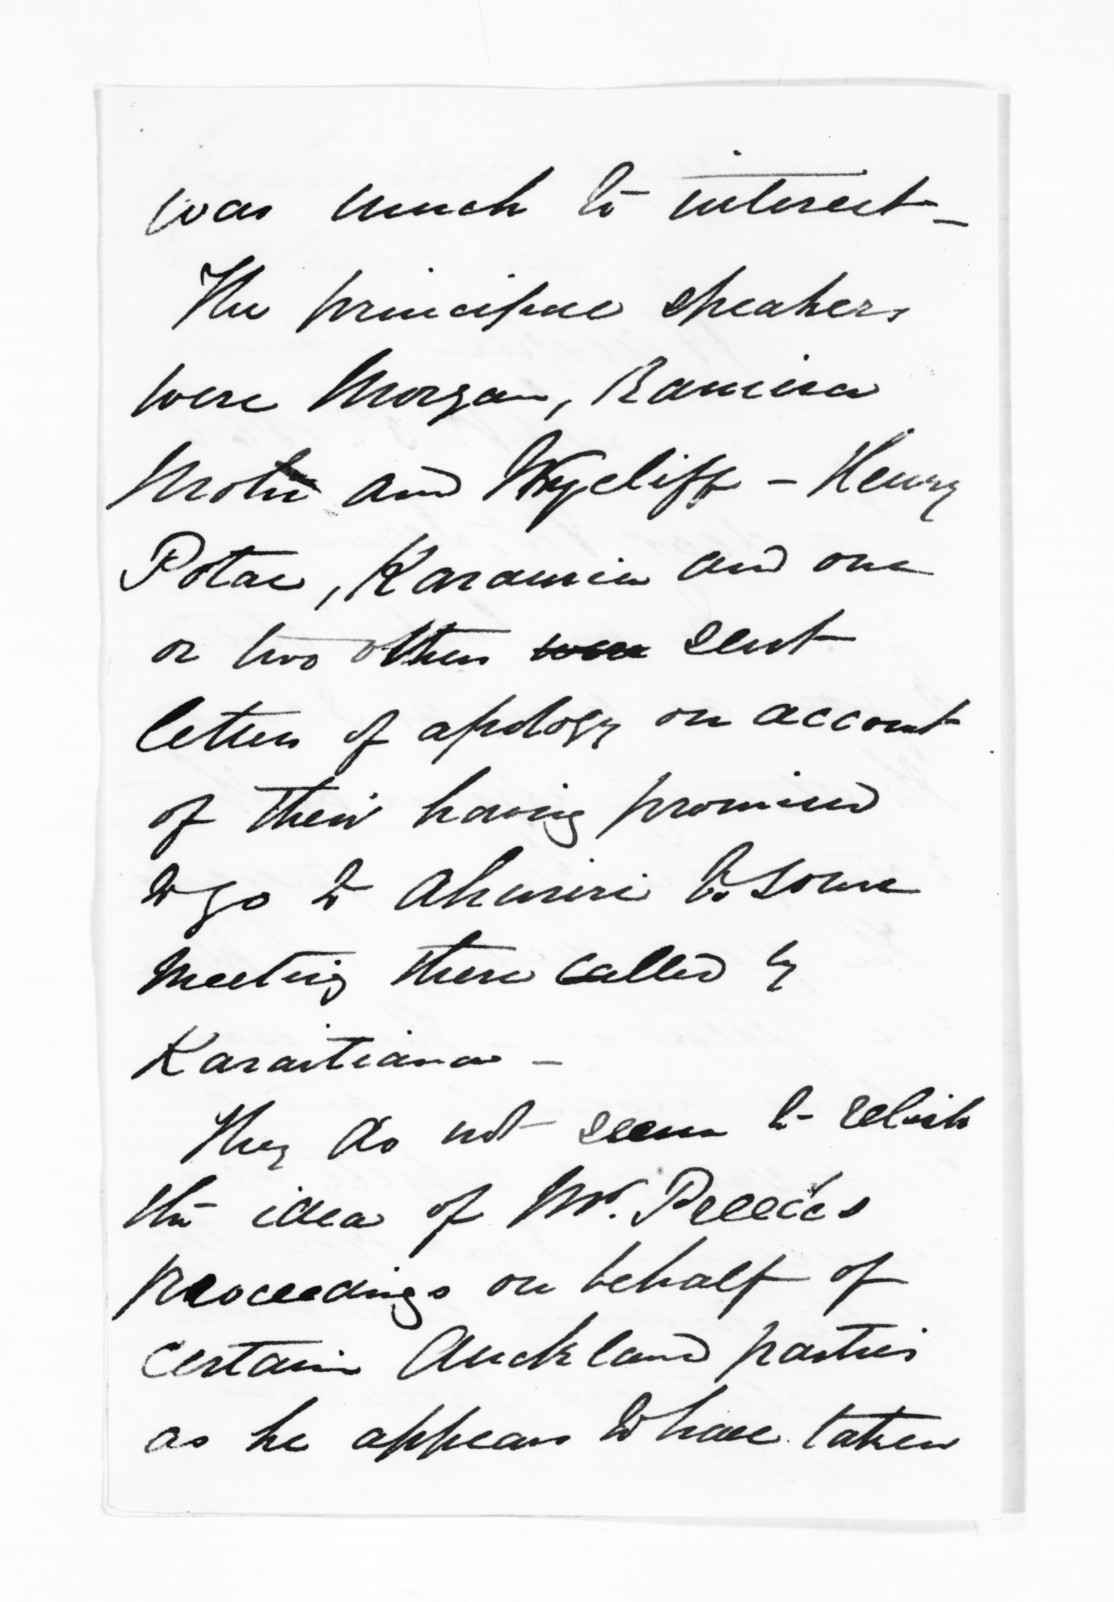 was much to interest _
The principal speakers
were Morgan, Rameira
and Wycliff - Henry
Potae, Karauria and one
or two others were sent
letters of apology on account
of their having promised
to go to Ahuriri to some
meeting there called by
Karaitiana -
They do not seem to relish
the idea of Mr. Preece's
proceedings on behalf of
certain Auckland parties
as he appears to have taken